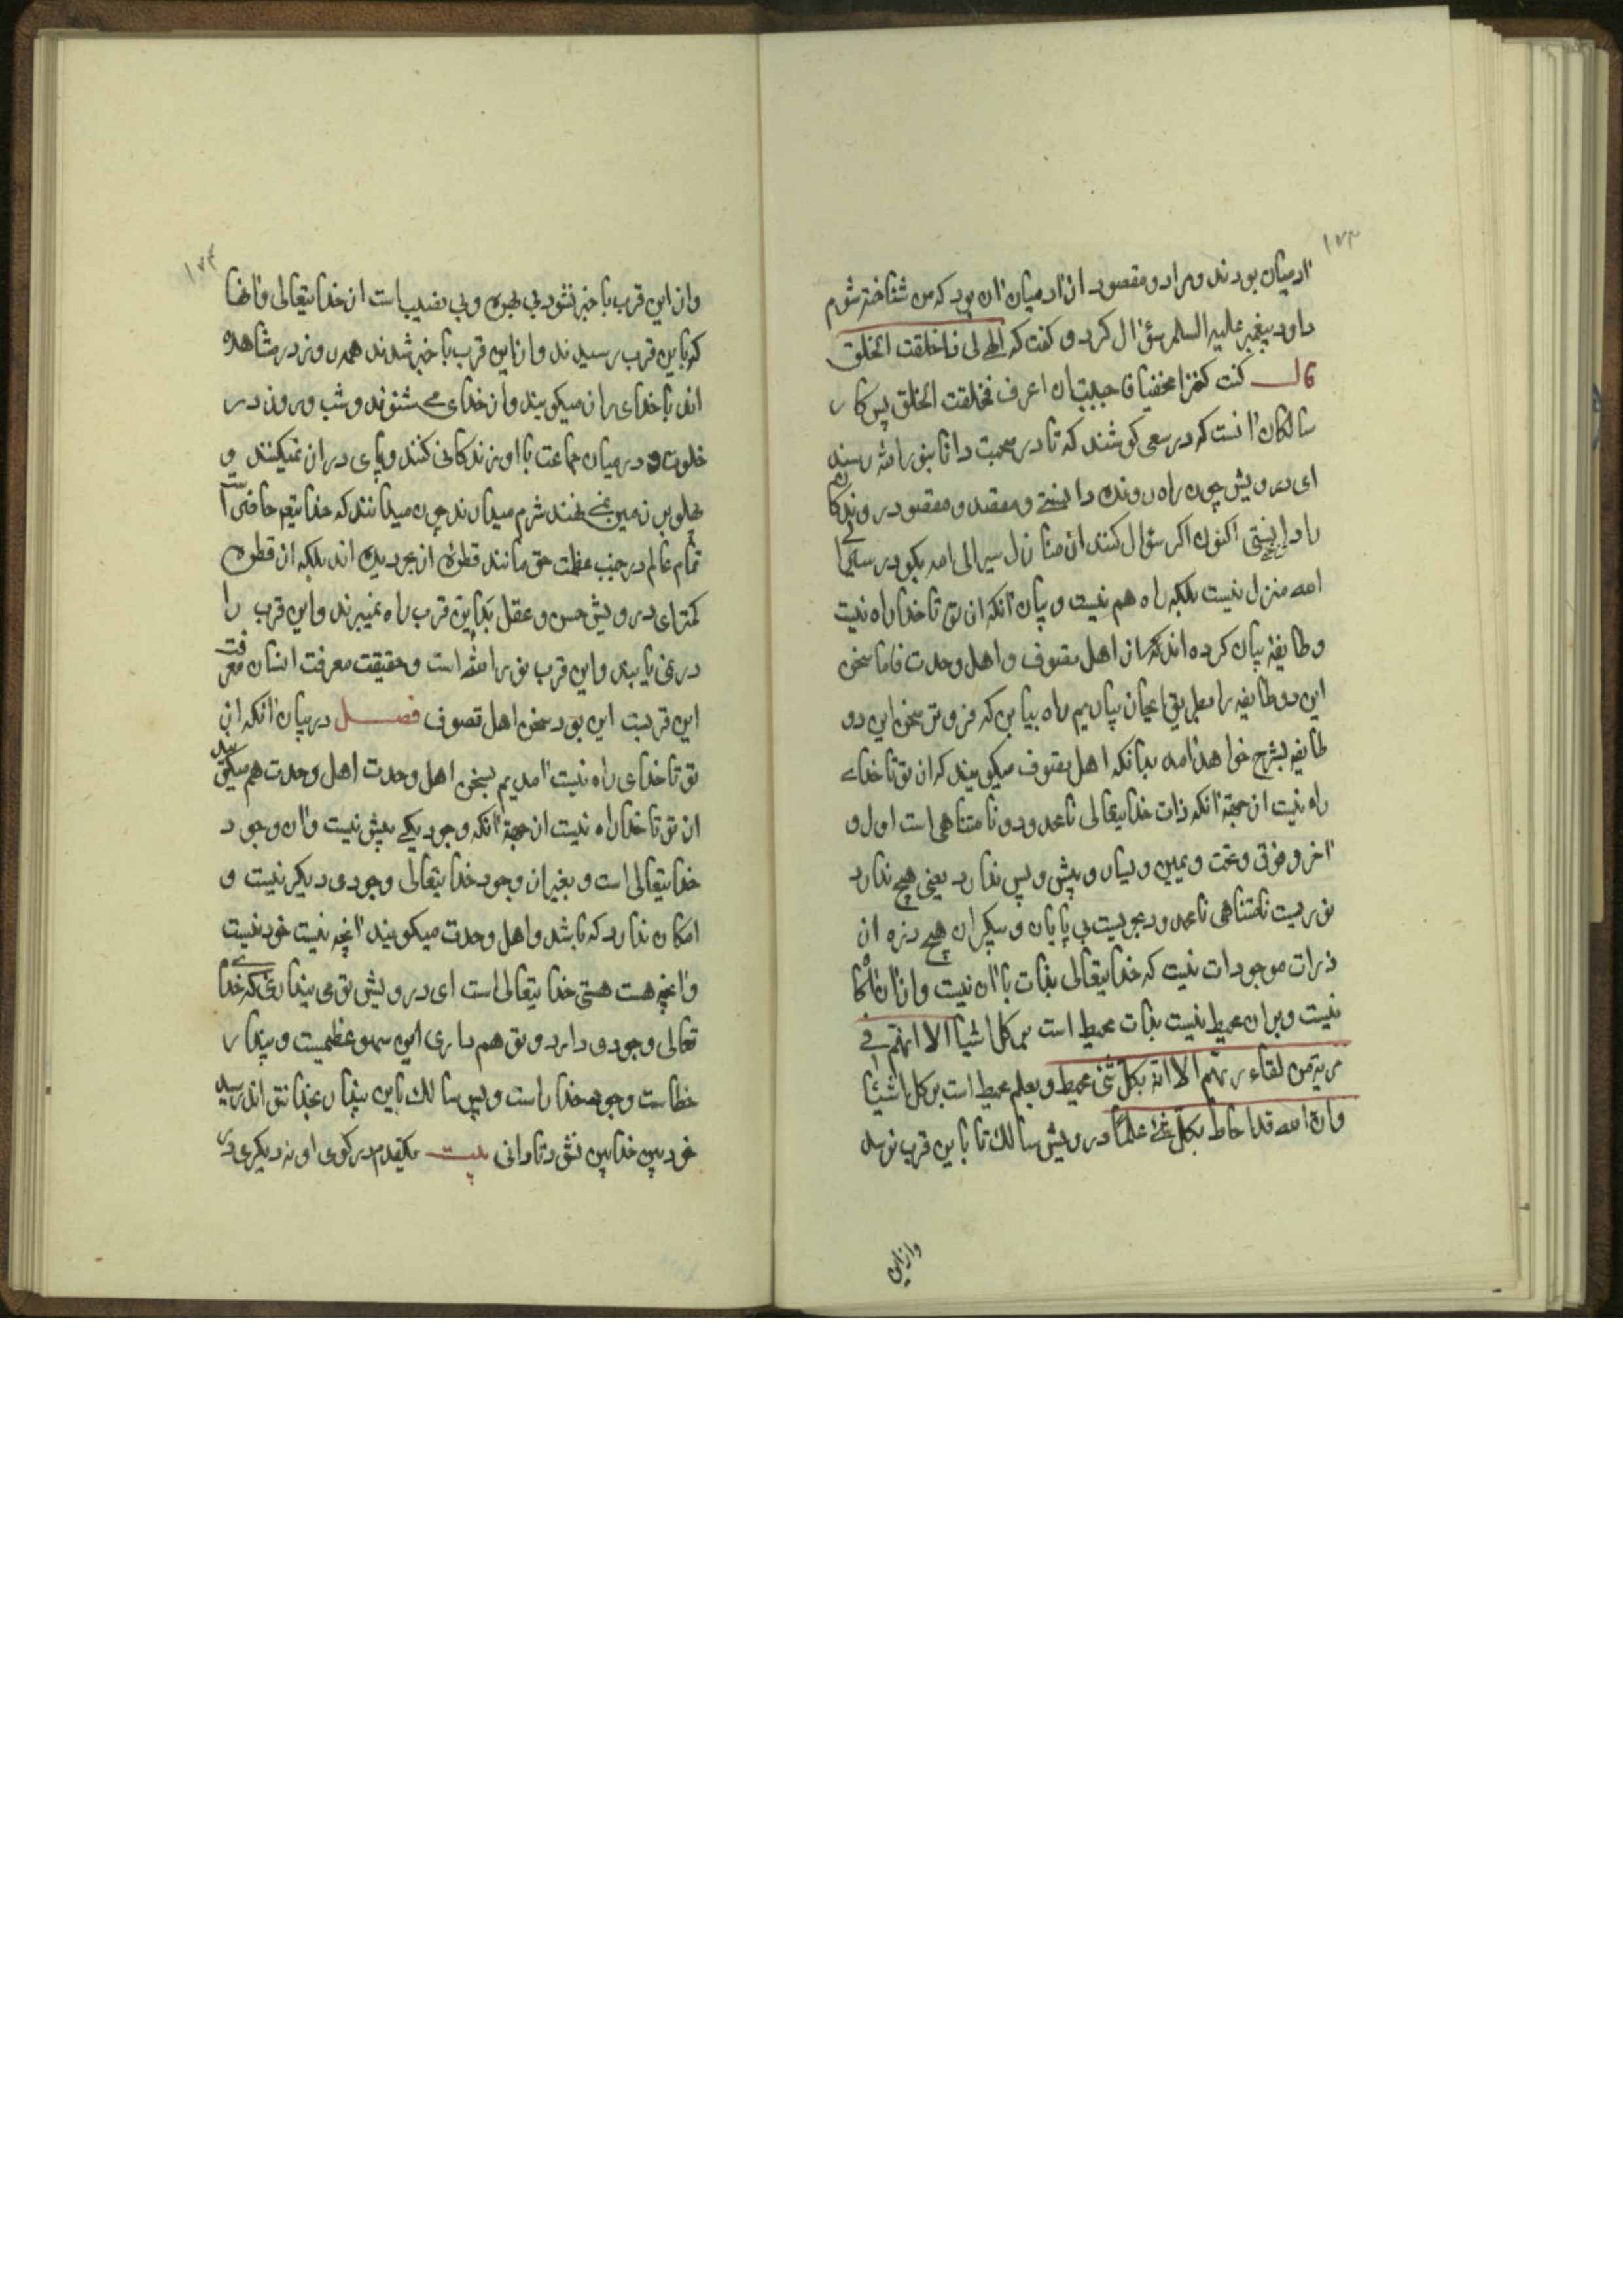 ۱۷۳
آدمیان بودند و مراد و مقصود از آدمیان آن بود که من شناخته شوم
داود پیغمبر علیه السلم سؤال کرد و کفت که الهی لما ذا خلقت الخلق
قال کنت کنزا مخفیا فاحببت ان اعرف فخلقت الخلق پس کار
سالکان آنست که در سعی کوشند که تا در صحبت دانا بنور الله رسند
ای درویش چون راه رونده دانستی و مقصد و مقصود روندکان
را دانستی اکنون اکر سؤال کنند از منازل سیر الی الله بکو در سیر الی
الله منزل نیست بلکه راه هم نیست و بیان آنکه از تو تا خدا راه نیست
و طایفه بیان کرده اند که از اهل تصوف و اهل وحدت فاما سخن
این دو طایفه را بطریق ایجاز بیان کنیم
طایفه بشرح خواهد آمد بدانکه اهل تصوف میکویند که از تو تا خدای
راه نیست از جهة آنکه ذات خدایتعالی نامحدود و نامتناهی است اول و
آخر و فوق و تحت و یمین و یسار و پیش و پس ندارد یعنی هیچ ندارد
نوریست نامتناهی نامحدود بحریست بی پایان و بیکران هیچ ذره از
ذرات موجودات نیست که خدایتعالی بذات با آن نیست و از آن آکاه
نیست و بر آن محیط نیست بذات محیط است بر کل اشیا الا انهم فی
مریة من لقاء ربهم الا انه بکل شئ محیط و بعلم محیط است بر کل اشیا
وان الله قد احاط بکل شئ علما درویش سالک تا باین قرب نرسد
وازین
۱۷۴
وازین قرب با خبر نشود بی بهره و بی نصیب است از خدایتعالی و آنها
که باین قرب رسیدند و ازین قرب با خبر شدند همه روز در مشاهده
اند با خدای راز میکویند و از خدای می شنوند و شب و روز در
خلوت و در میان جماعت با او زندکانی کنند و پای دراز نمیکنند و
پهلو بر زمین نمی نهند شرم میدارند چون میدانند که خدایتعم حاضر است
تمام عالم در جنب عظمت حق مانند قطرۀ از بحر دیده اند بلکه از قطره
کمتر ای درویش حس و عقل بدین قرب راه نمیبرند و این قرب را
در نمی یابند و این قرب نور الله است و حقیقت معرفت انسان معرفت
این قربت این بود سخن اهل تصوف فصل در بیان آنکه از
تو تا خدای راه نیست آمدیم بسخن اهل وحدت اهل وحدت هم میکویند
از تو تا خدا راه نیست از جهة آنکه وجود یکی بیش نیست و آن وجود
خدایتعالی است و بغیر از وجود خدایتعالی وجودی دیکر نیست و
امکان ندارد که باشد و اهل وحدت میکویند آنچه نیست خود نیست
و آنچه هست هستی خدایتعالی است ای درویش تو می پنداری که خدای
تعالی وجودی دارد و تو هم داری این سهو عظیمست و پندار
خطاست وجود خدا راست و بس سالک باین پندار بخدا نتواند رسید
خود بین خدا بین نشود تا دانی بیت یکقدم در کوی او نه دیکری در